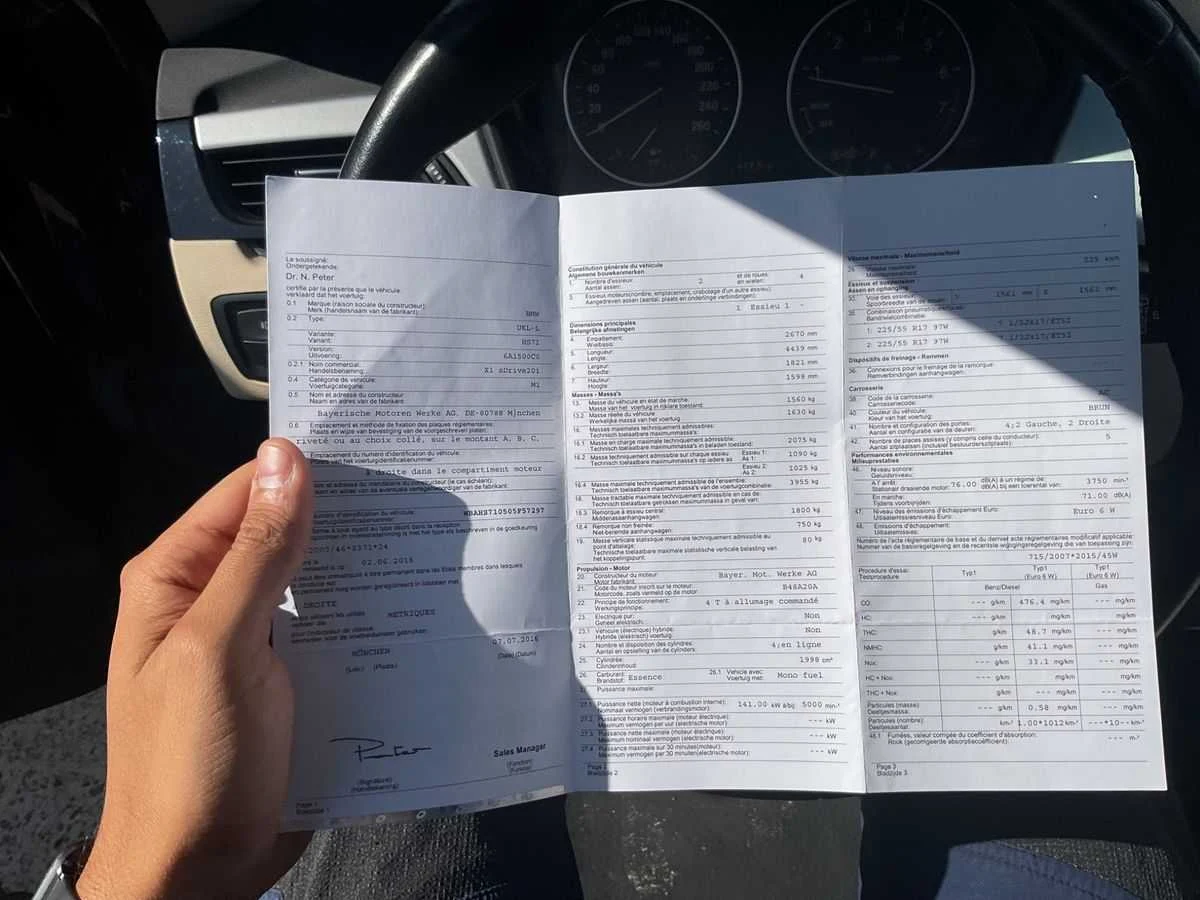 Le soussigné:
Ondergetekende:
Dr. N. Peter
certifie par la présente que le véhicule:
verklaard dat het voertuig:
0.1 Marque (raison sociale du constructeur):
Merk (handelsnaam van de fabrikant): BMW
0.2 Type:
UKL-L
Variante:
Variant: HS71
Version:
Uitvoering: 6A1500C0
0.2.1 Nom commercial:
Handelsbenaming: X1 sDrive20i
0.4 Catégorie de véhicule:
Voertuigcategorie: M1
0.5 Nom et adresse du constructeur
Naam en adres van de fabrikant
Bayerische Motoren Werke AG, DE-80788 M}nchen
0.6 Emplacement et méthode de fixation des plaques réglementaires:
Plaats en wijze van bevestiging van de voorgeschreven platen:
riveté ou au choix collé, sur le montant A, B, C,
Emplacement du numéro d'identification du véhicule:
Plaats van het voertuigidentificatienummer:
à droite dans le compartiment moteur
et adresse du mandataire du constructeur (le cas échéant):
en adres van de eventuele vertegenwoordiger van de fabrikant:
d'identification du véhicule:
WBAHS710505F57297
2007/46*0371*24
02.06.2016
DROITE
METRIQUES
MÜNCHEN 07.07.2016
(Lieu) (Plaats) (Date) (Datum)
Sales Manager
(Signature) (Fonction)
(Handtekening) (Functie)
Page 1
Bladzijde 1
Constitution générale du véhicule
Algemene bouwkenmerken
1. Nombre d'essieux: 2 et de roues: 4
Aantal assen: en wielen:
3. Essieux moteurs(nombre, emplacement, crabotage d'un autre essieu):
Aangedreven assen (aantal, plaats en onderlinge verbindingen):
1 Essieu 1 -
Dimensions principales
Belangrijke afmetingen
4. Empattement: 2670 mm
Wielbasis:
5. Longueur: 4439 mm
Lengte:
6. Largeur: 1821 mm
Breedte:
7. Hauteur: 1598 mm
Hoogte
Masses - Massa's
13. Masse du véhicule en état de marche: 1560 kg
Massa van het voertuig in rijklare toestand:
13.2 Masse réelle du véhicule: 1630 kg
Werkelijke massa van het voertuig
16. Masses maximales techniquement admissibles:
Technisch toelaatbare maximummassa's:
16.1 Masse en charge maximale techniquement admissible: 2075 kg
Technisch toelaatbare maximummassa's in beladen toestand:
16.2 Masse techniquement admissible sur chaque essieu Essieu 1: 1090 kg
Technisch toelaatbare maximummassa's op iedere as As 1:
Essieu 2: 1025 kg
As 2:
16.4 Masse maximale techniquement admissible de l'ensemble: 3955 kg
Technisch toelaatbare maximummassa's van de voertuigcombinatie:
18. Masse tractable maximale techniquement admissible en cas de:
Technisch toelaatbare getrokken maximummassa's in geval van:
18.3 Remorque à essieu central: 1800 kg
Middenasaanhangwagen:
18.4 Remorque non freinée: 750 kg
Niet-beremde aanhangwagen:
19. Masse verticale statistique maximale techniquement admissible au 80 kg
point d'attelage:
Technische toelaatbare maximale statistische verticale belasting van
het koppelingspunt:
Propulsion - Motor
20. Constructeur du moteur: Bayer. Mot. Werke AG
Motor fabrikant:
21. Code du moteur inscrit sur le moteur: B48A20A
Motorcode, zoals vermeld op de motor:
22. Principe de fonctionnement: 4 T à allumage commandé
Werkingsprincipe:
23. Electrique pur: Non
Geheel elektrisch:
23.1 Véhicule (électrique) hybride: Non
Hybride (elektrisch) voertuig:
24. Nombre et disposition des cylindres: 4;en ligne
Aantal en opstelling van de cylinders:
25. Cylindrée: 1998 cm³
Cilinderinhoud:
26. Carburant: Essence 26.1 Vehicle avec Mono fuel
Brandstof: Voertuig met:
27. Puissance maximale:
27.1 Puissance nette (moteur à combustion interne): 141.00 kW à/bij 5000 min-¹
Nominaal vermogen (verbrandingsmotor):
27.2 Puissance horaire maximale (moteur électrique): --- kW
Maximum vermogen per uur (electrische motor)
27.3 Puissance nette maximale (moteur électrique): --- kW
Maximum nominaal vermogen (electrische motor)
27.4 Puissance maximale sur 30 minutes(moteur): --- kW
Maximum vermogen per 30 minuten(electrische motor):
Page 2
Bladzijde 2
Vitesse maximale - Maximumsnelheid
29. Vitesse maximale: 225 km/h
Maximumsnelheid
Essieux et suspension
Assen en ophanging
30. Voie des essieux: 1561 mm 2 1562 mm
Spoorbreedte van de assen:
35. Combinaison pneumatique/roues:
Band/wielcombinatie:
1: 225/55 R17 97W 7 1/2Jx17/ET52
2: 225/55 R17 97W 7 1/2Jx17/ET52
Dispositifs de freinage - Remmen
36. Connexions pour le freinage de la remorque:
Remverbindingen aanhangwagen:
Carrosserie
38. Code de la carrosserie: AC
Carrosseriecode:
40. Couleur du véhicule: BRUN
Kleur van het voertuig:
41. Nombre et configuration des portes: 4;2 Gauche, 2 Droite
Aantal en configuratie van de deuren:
42. Nombre de places assises (y compris celle du conducteur): 5
Aantal zitplaatsen (inclusief bestuurderszitplaats):
Performances environnementales
Milieuprestaties
46. Niveau sonore:
Geluidsniveau:
A l'arrêt: 76.00 dB(A) à un régime de: 3750 min-¹
Stationair draaiende motor: dB(A) bij een toerental van:
En marche: 71.00 dB(A)
Tijdens voorbijrijden:
47. Niveau des émissions d'échappement Euro: Euro 6 W
Uitlaatemissieniveau Euro:
48. Emissions d'échappement:
Uitlaatemissies:
Numéro de l'acte réglementaire de base et du dernier acte réglementaire modificatif applicable:
Nummer van de basisregelgeving en de recentste wijzigingsregelgeving die van toepassing zijn:
715/2007*2015/45W
Procedure d'essai: Typ1 Typ1 Typ1
Testprocedure (Euro 6 W) (Euro 6 W)
Benz/Diesel Gas
CO: --- g/km 476.4 mg/km --- mg/km
HC: --- g/km mg/km mg/km
THC: g/km 48.7 mg/km --- mg/km
NMHC: g/km 41.1 mg/km --- mg/km
Nox: --- g/km 33.1 mg/km --- mg/km
HC + Nox: --- g/km mg/km mg/km
THC + Nox: g/km --- mg/km --- mg/km
Particules (masse): --- g/km 0.58 mg/km --- mg/km
Deeltjesmassa:
Particules (nombre): km-¹ 1.00*1012 km-¹ ---*10-- km-¹
Deeltjesaantal:
48.1 Fumées, valeur corrigée du coefficient d'absorption: --- m-¹
Rook (gecorrigeerde absorptiecoëfficient):
Page 3
Bladzijde 3